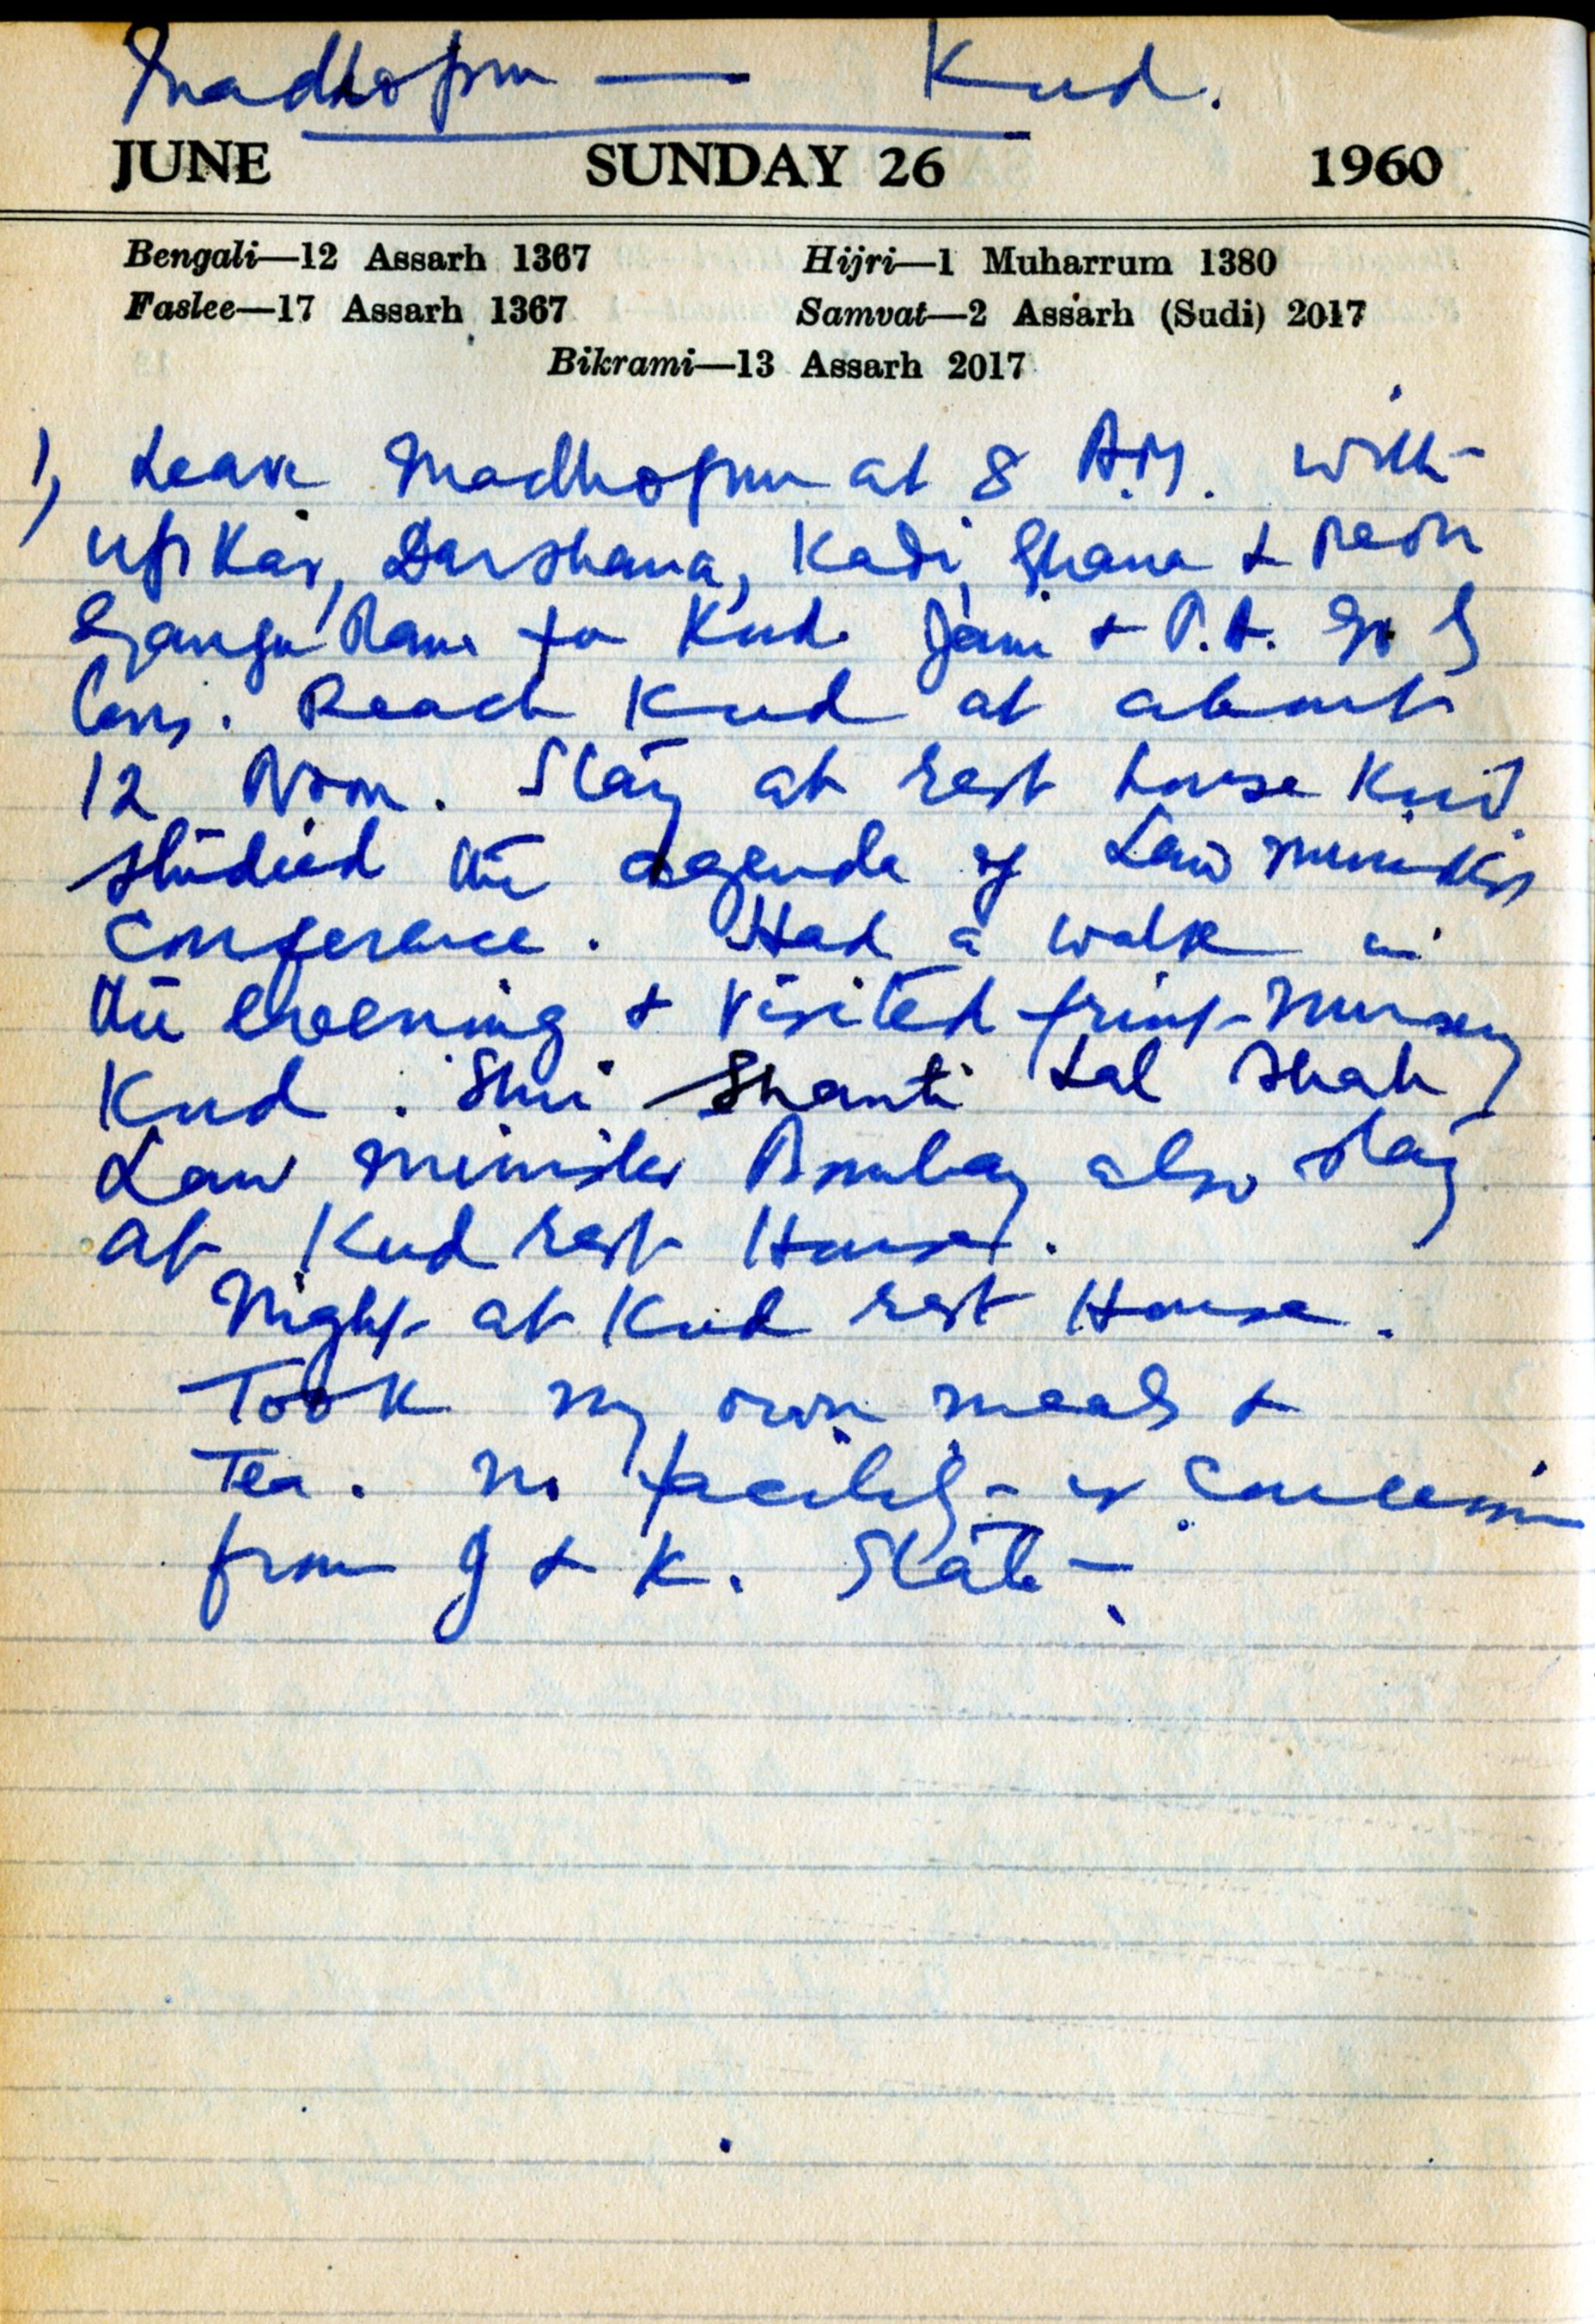 Madhopur — Kud.
JUNE SUNDAY 26 1960
Bengali—12 Assarh 1367 Hijri—1 Muharrum 1380
Faslee—17 Assarh 1367 Samvat—2 Assarh (Sudi) 2017
Bikrami—13 Assarh 2017
1, Leave Madhopur at 8 A.M. with
Upkar, Darshana, Kadi, Ghana & peon
Ganga Ram for Kud. Jain & P.A. go by
Reach Kud at about
12 Noon. Stay at rest house Kud.
Studied the agenda of Law Ministers
Conference. Had a walk in
the evening & visited fruit Nursery
Kud. Shri Shanti Lal Shah
Law Minister Bombay also stay
at Kud rest House.
Night at Kud rest House.
Took my own meals &
Tea. No facility or Concession
from J & K. State.